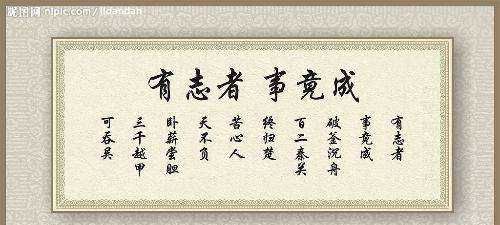 昵图网
有志者 事竟成
有志者
事竟成
破釜沉舟
百二秦关
终归楚
苦心人
天不负
卧薪尝胆
三千越甲
可吞吴